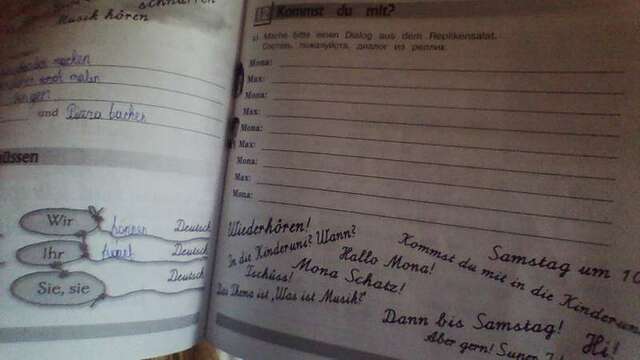 Musik hören
und Pizza backen
müssen
Wir können Deutsch
Ihr Deutsch
Sie, sie Deutsch
Kommst du mit?
Mache bitte einen Dialog aus dem Replikensalat.
Составь, пожалуйста, диалог из реплик.
Mona:
Max:
Mona:
Max:
Mona:
Max:
Mona:
Max:
Mona:
Wiederhören!
Samstag um 10
In die Kinderuni? Wann?
Kommst du mit in die Kinderuni
Hallo Mona!
Tschüss!
Mona Schatz!
Das Thema ist „Was ist Musik?“
Dann bis Samstag!
Hi!
Aber gern! Super